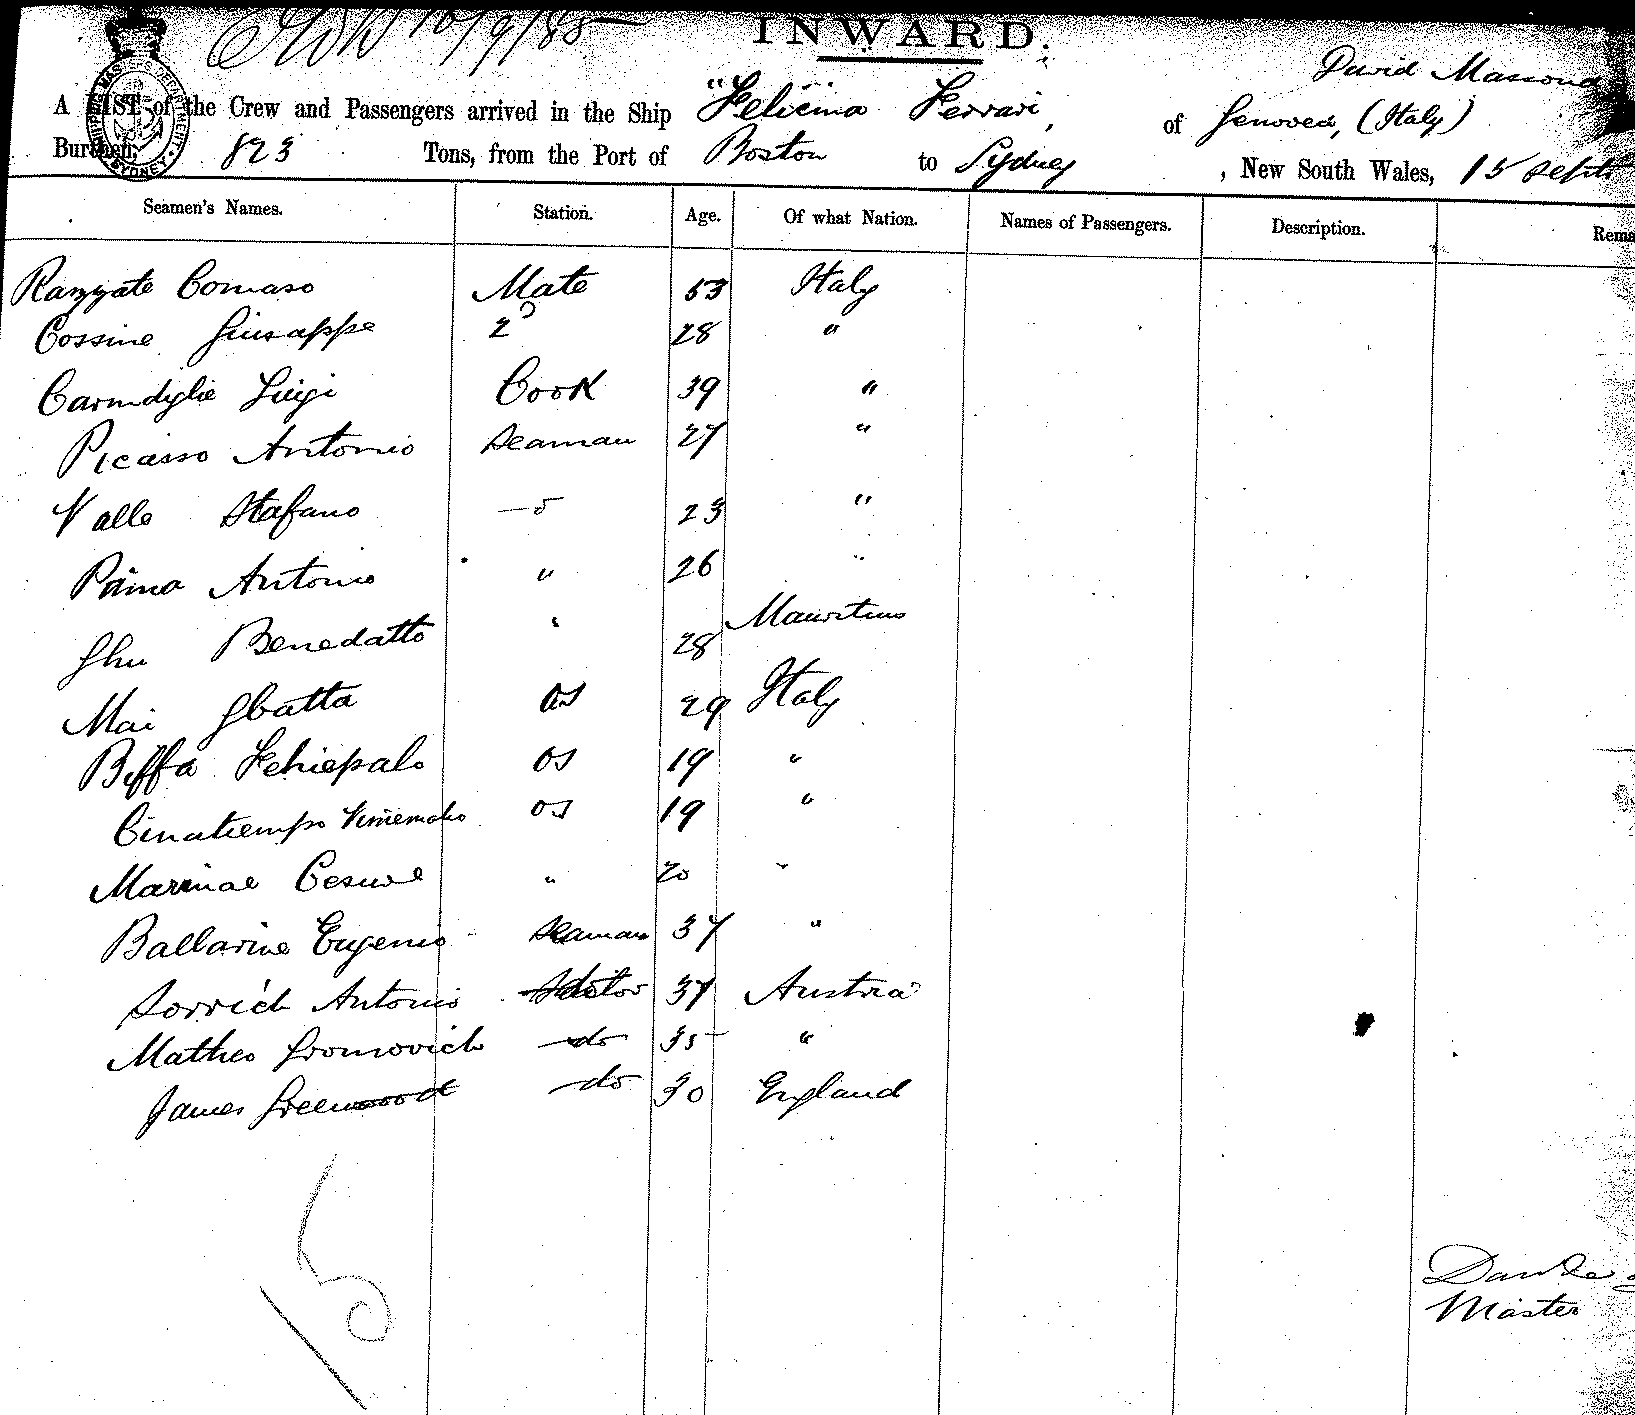 10/9/85
INWARD.
SHIPPING MASTER'S DEPARTMENT. SYDNEY
David Massone
A LIST of the Crew and Passengers arrived in the Ship "Felicina Ferrari, of Genova, (Italy)
Burthen, 823 Tons, from the Port of Boston to Sydney, New South Wales, 15 Sept
Seamen's Names. Station. Age. Of what Nation. Names of Passengers. Description. Rema
Razzate Comaso Mate 53 Italy
Cossine Giusappe 2º 28 "
Carmdylie Luigi Cook 39 "
Picasso Antonio Seaman 27 "
Valle Stafano —o 23 "
Paina Antonio " 26 "
Ghu Benedatto " 28 Mauritius
Mai Gbatta OS 29 Italy
Biffa OS 19 "
Cinatiempo OS 19 "
Marinae " 20 "
Ballarine Eugenio Seaman 37 "
Sorrich Antonio 37 Austria
Matheo Gromovich do 35 "
James Greenwood do 30 England
15
Master